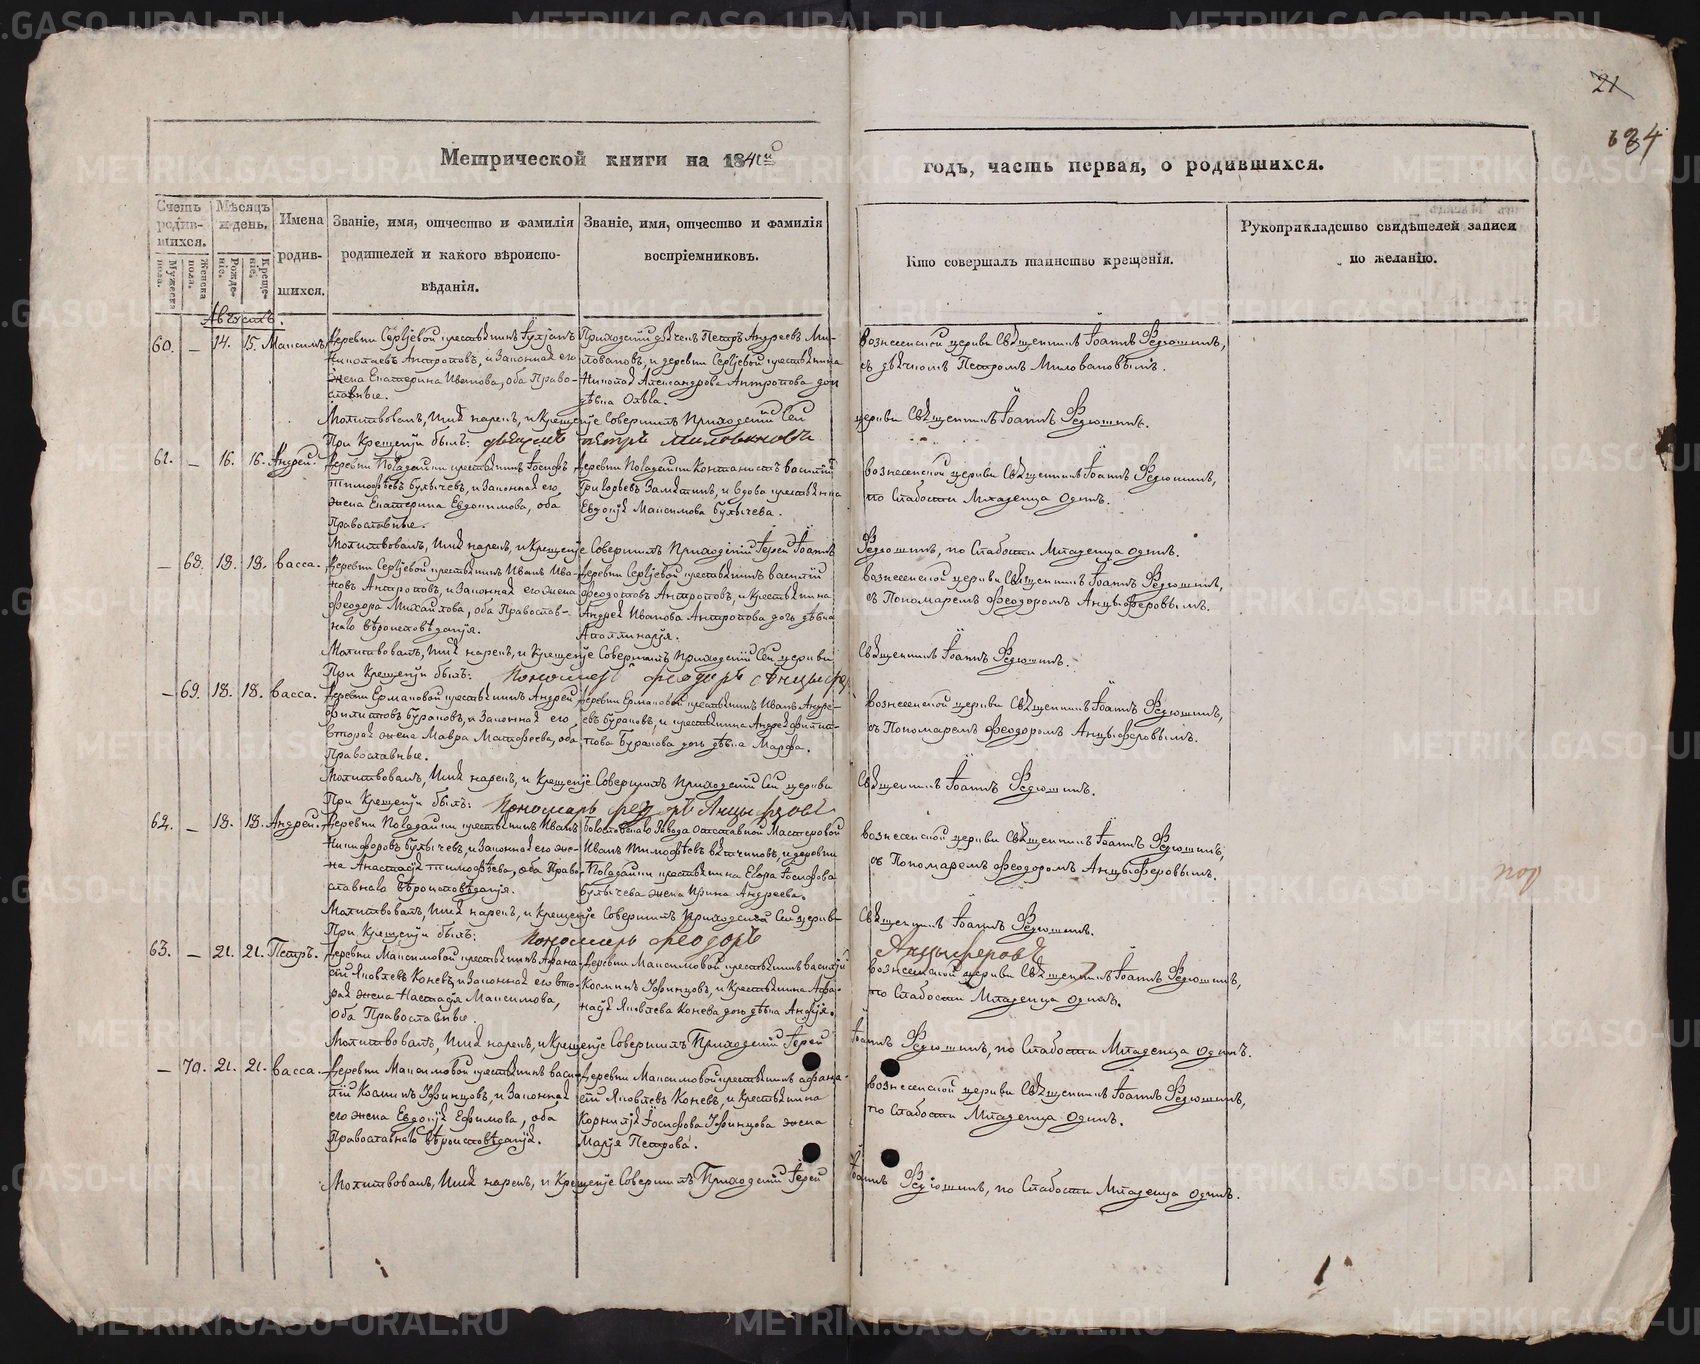 21
634
Метрической книги на 184
годъ, часть первая, о родившихся.
Счетъ родив-шихся.
Мужеска пола.
Женска пола.
Мѣсяцъ и день.
Рожде-нія.
Креще-нія.
Имена родив-шихся.
Званіе, имя, отчество и фамилія
родителей и какого вѣроиспо-
вѣданія.
Званіе, имя, отчество и фамилія
воспріемниковъ.
Кто совершалъ таинство крещенія.
Рукоприкладство свидѣтелей записи
по желанію.
Августъ.
60. — 14. 15. Максимъ
Николаевъ Антроповъ, и Законная его
жена Екатерина Иванова, оба Право-
славные.
Приходскій дьячекъ Петръ Андреевъ Ми-
ловановъ, и деревни Сергѣевой крестьянина
Николая Александрова Антропова дочь
дѣвка Ольга.
Вознесенской церкви Священникъ Іоаннъ Ѳедюшинъ,
съ дьячкомъ Петромъ Миловановымъ.
Молитвовалъ, Имя нарекъ, и Крещеніе Совершилъ Приходскій Сей
церкви Священникъ Іоаннъ Ѳедюшинъ.
При Крещеніи былъ: дьячекъ Петръ Миловановъ
61. — 16. 16. Андрей.
Тимофѣевъ Булычевъ, и Законная его
жена Екатерина Евдокимова, оба
Православные.
Евдокія Максимова Булычева.
Вознесенской церкви Священникъ Іоаннъ Ѳедюшинъ,
по Слабости Младенца Одинъ.
Молитвовалъ, Имя нарекъ, и Крещеніе Совершилъ Приходскій Іерей Іоаннъ
Ѳедюшинъ, по Слабости Младенца одинъ.
— 68. 18. 18. Васса.
Деревни Сергѣевой крестьянинъ Иванъ Ива-
новъ Антроповъ, и Законная его жена
Феодора Михайлова, оба Православ-
наго вѣроисповѣданія.
Деревни Сергѣевой крестьянинъ Василій
Феодотовъ Антроповъ, и крестьянина
Андрея Иванова Антропова дочь дѣвка
Аполлинарія.
Вознесенской церкви Священникъ Іоаннъ Ѳедюшинъ,
съ Пономаремъ Феодоромъ Анцыферовымъ.
Молитвовалъ, Имя нарекъ, и Крещеніе Совершилъ Приходскій Сей церкви
Священникъ Іоаннъ Ѳедюшинъ.
При Крещеніи былъ: Пономарь Феодоръ Анцыфер
— 69. 18. 18. Васса.
Деревни Ермаковой крестьянинъ Андрей
Филиповъ Бураковъ, и Законная его
вторая жена Мавра Матфеева, оба
Православные.
Деревни Ермаковой крестьянинъ Иванъ Андре-
евъ Бураковъ, и крестьянина Андрея Филип-
пова Буракова дочь дѣвка Марфа.
Вознесенской церкви Священникъ Іоаннъ Ѳедюшинъ,
съ Пономаремъ Феодоромъ Анцыферовымъ.
Молитвовалъ, Имя нарекъ, и Крещеніе Совершилъ Приходскій Сей церкви
Священникъ Іоаннъ Ѳедюшинъ.
При Крещеніи былъ: Пономарь Феодоръ Анцыферовъ
62. — 18. 18. Андрей.
Никифоровъ Булычевъ, и Законная его же-
на Анастасія Тимофѣева, оба Право-
славнаго вѣроисповѣданія.
Завода отставной Мастеровой
Иванъ Тимофѣевъ Вятчиновъ, и деревни
крестьянина Егора Іосифова
Булычева жена Ирина Андреева.
Вознесенской церкви Священникъ Іоаннъ Ѳедюшинъ,
съ Пономаремъ Феодоромъ Анцыферовымъ.
Молитвовалъ, Имя нарекъ, и Крещеніе Совершилъ Приходскій Сей церкви
Священникъ Іоаннъ Ѳедюшинъ.
При Крещеніи былъ: Пономарь Феодоръ
Анцыферовъ
63. — 21. 21. Петръ.
Деревни Максимовой крестьянинъ Афана-
сій Яковлевъ Коневъ, и Законная его вто-
рая жена Настасія Максимова,
Оба Православные.
Деревни Максимовой крестьянинъ Василій
Козминъ Уфинцовъ, и Крестьянина Афа-
насія Яковлева Конева дочь дѣвка
Вознесенской церкви Священникъ Іоаннъ Ѳедюшинъ,
по Слабости Младенца одинъ.
Молитвовалъ, Имя нарекъ, и Крещеніе Совершилъ Приходскій Іерей
Іоаннъ Ѳедюшинъ, по Слабости Младенца Одинъ.
— 70. 21. 21. Васса.
Деревни Максимовой крестьянинъ Васи-
лій Козминъ Уфинцовъ, и Законная
его жена Евдокія Ефимова, оба
Православнаго вѣроисповѣданія.
Деревни Максимовой крестьянинъ Афана-
сій Яковлевъ Коневъ, и Крестьянина
Корнилія Іосифова Уфинцова жена
Марія Петрова.
Вознесенской церкви Священникъ Іоаннъ Ѳедюшинъ,
по Слабости Младенца Одинъ.
Молитвовалъ, Имя нарекъ, и Крещеніе Совершилъ Приходскій Іерей
Іоаннъ Ѳедюшинъ, по Слабости Младенца одинъ.
METRIKI.GASO-URAL.RU